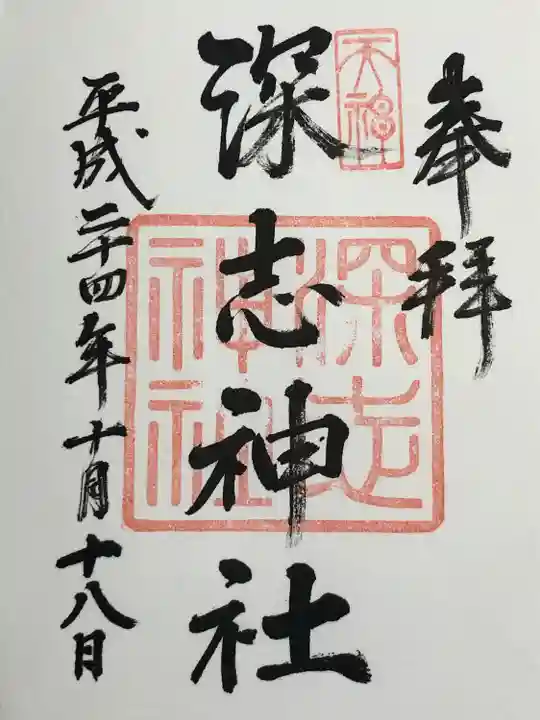 奉拝
天福
深志神社
深志神社
平成二十四年十月十八日